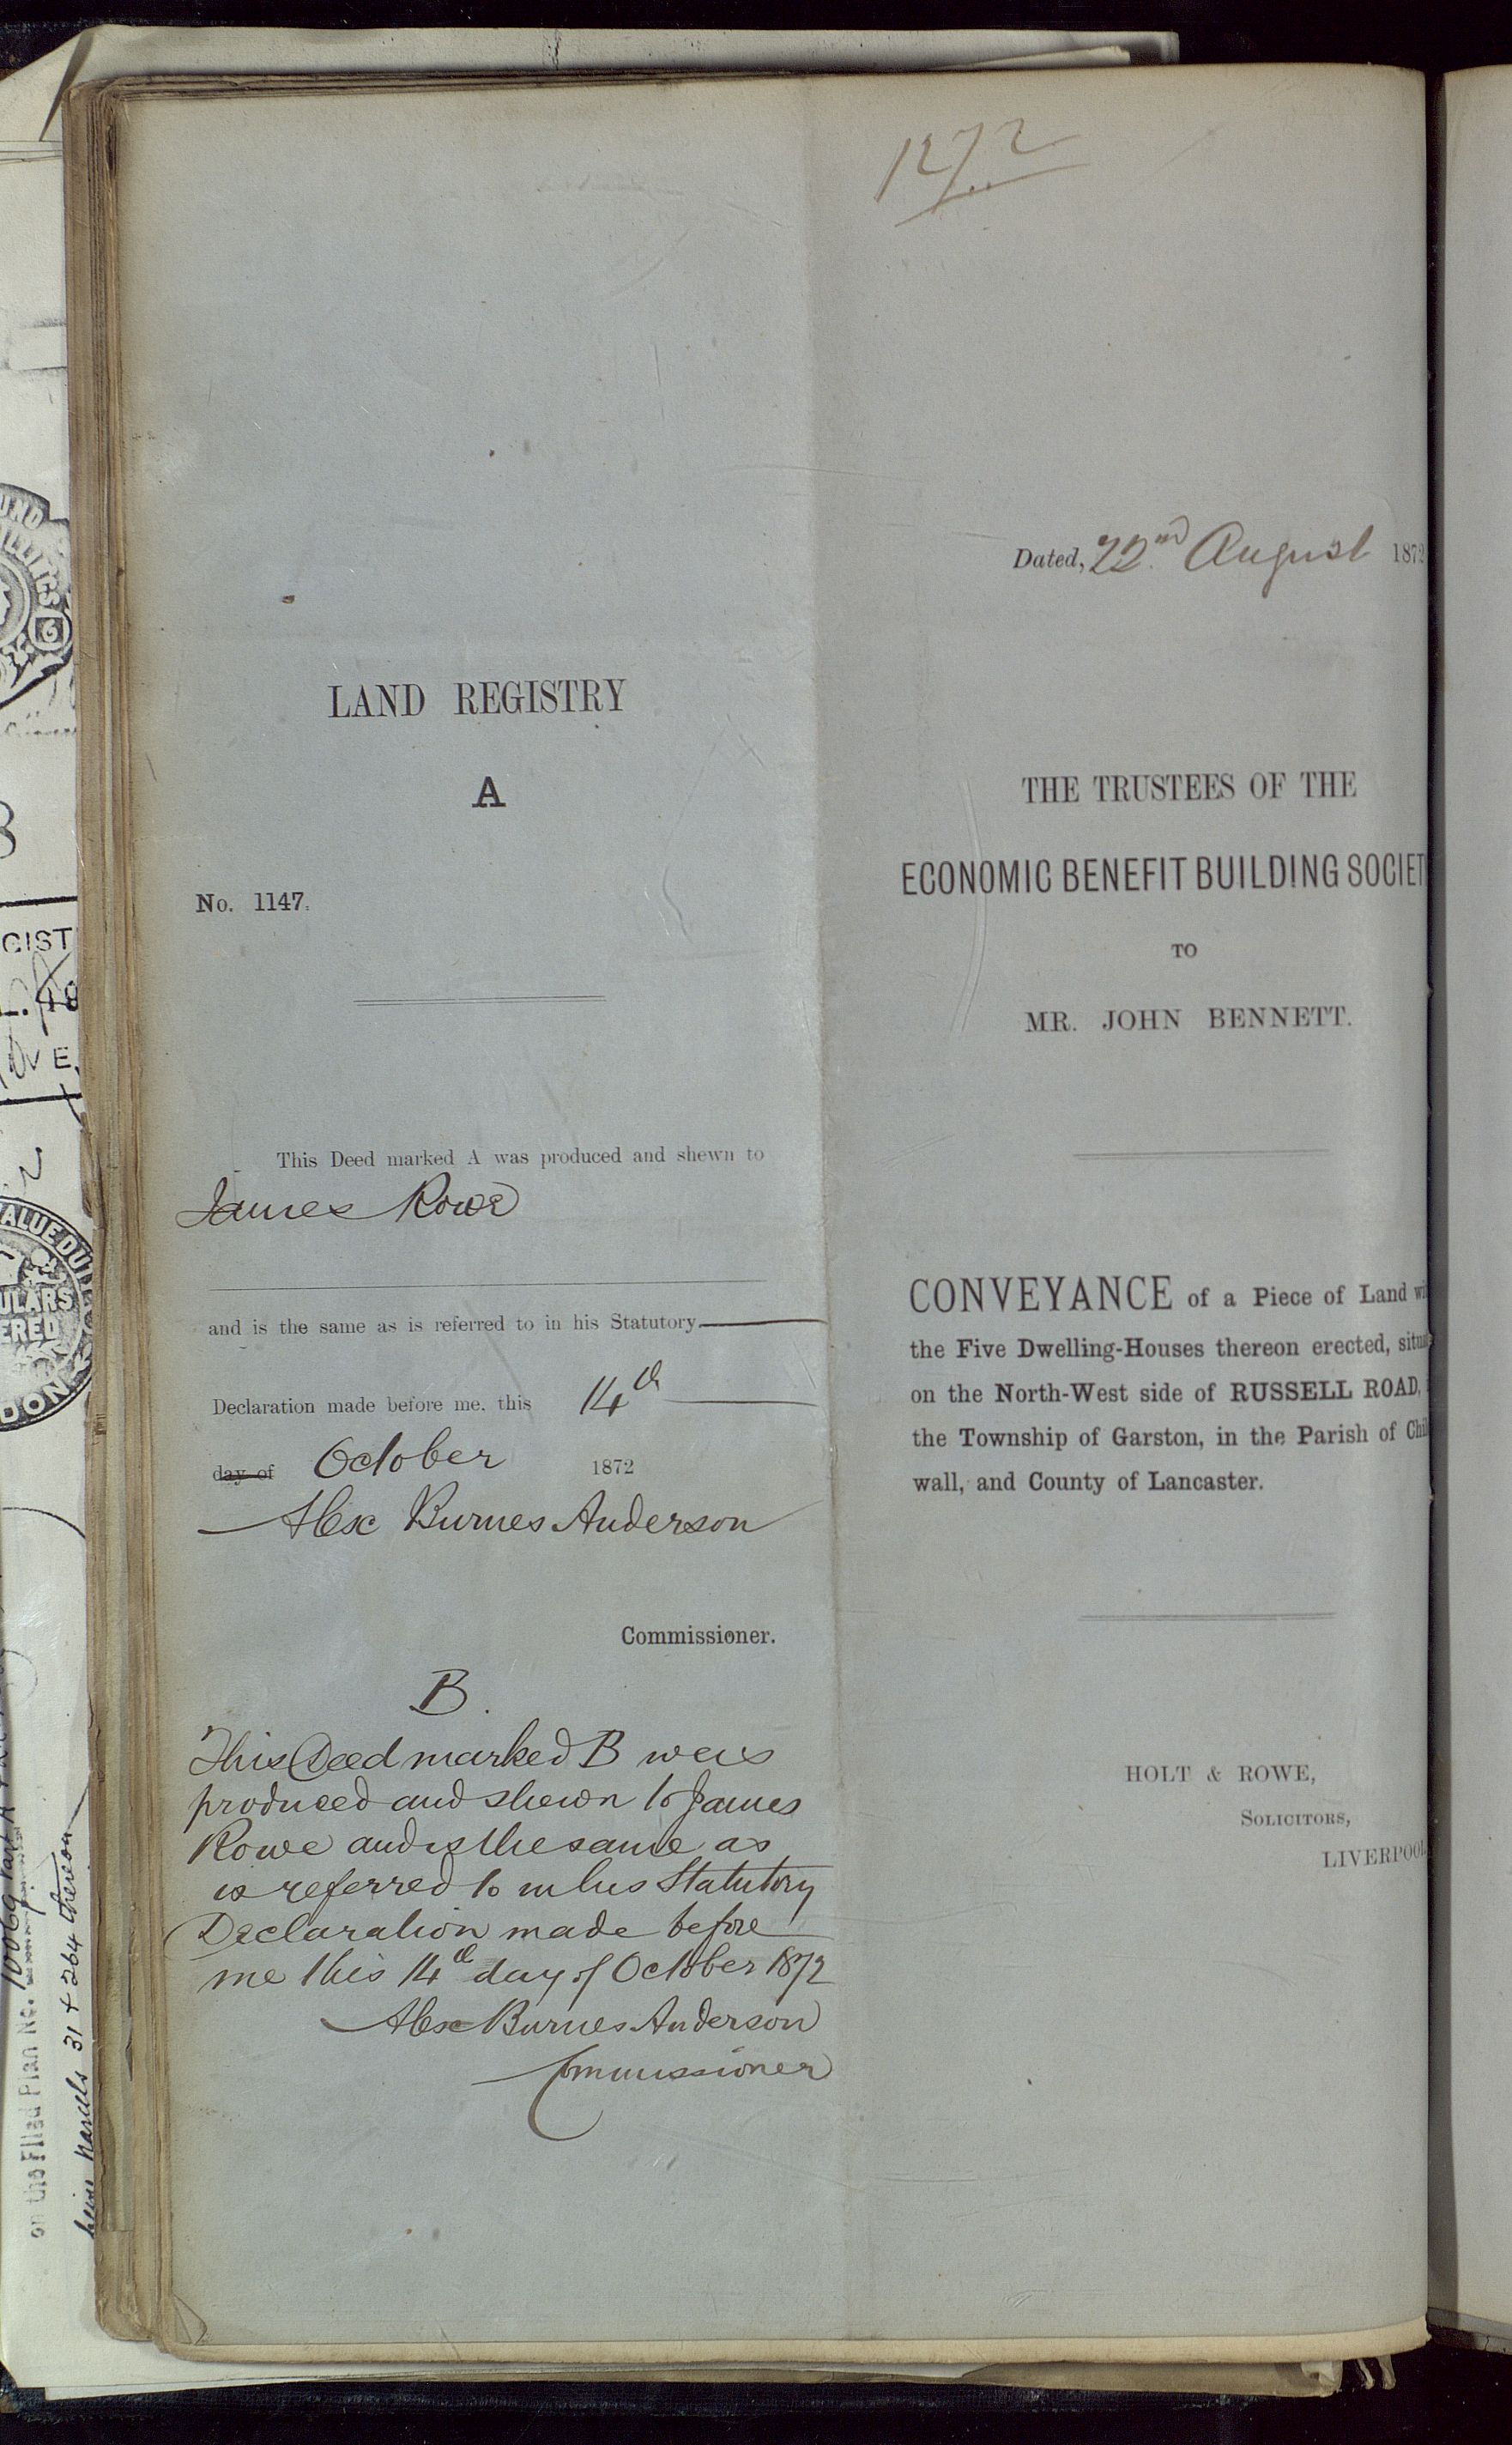 LAND REGISTRY
A
No. 1147.
This Deed marked A was produced and shewn to
James Rowe
and is the same as is referred to in his Statutory
Declaration made before me, this 14th
day of October 1872
Alex Burnes Anderson
Commissioner.
B.
This Deed marked B was
produced and shewn to James
Rowe and is the same as
is referred to in his Statutory
Declaration made before
me this 14th day of October 1872
Alex Burnes Anderson
Commissioner
Dated, 22nd August 1872
THE TRUSTEES OF THE
ECONOMIC BENEFIT BUILDING SOCIET
TO
MR. JOHN BENNETT.
CONVEYANCE of a Piece of Land wi
the Five Dwelling-Houses thereon erected, situa
on the North-West side of RUSSELL ROAD,
the Township of Garston, in the Parish of Chil
wall, and County of Lancaster.
HOLT & ROWE,
SOLICITORS,
LIVERPOOL
on the Filed Plan No.
31 + 264 thereon